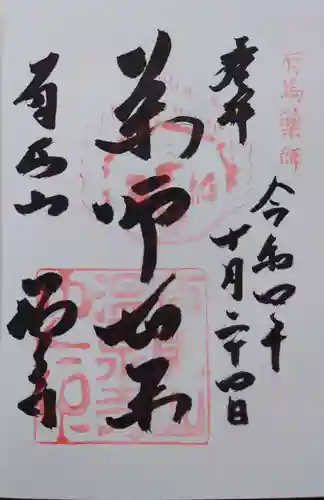 有馬薬師
奉拝
令和四年
十月二十四日
薬師如来
有馬山
温泉寺